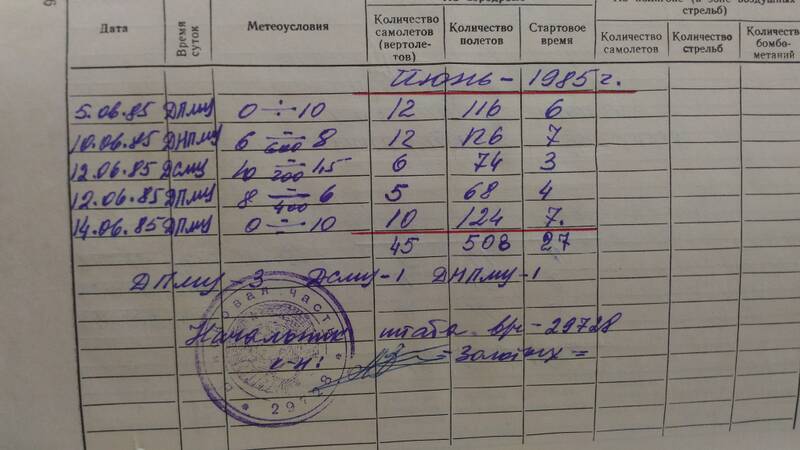 стрельб)
Дата Время суток Метеоусловия Количество самолетов (вертолетов) Количество полетов Стартовое время Количество самолетов Количество стрельб Количество бомбометаний
Июнь - 1985 г.
5.06.85 ДПМУ 0 ÷ 10 12 116 6
10.06.85 ДНПМУ 6 ÷ 8 600 12 126 7
12.06.85 ДСМУ 10 200 6 74 3
12.06.85 ДПМУ 8 ÷ 6 400 5 68 4
14.06.85 ДПМУ 0 ÷ 10 10 124 7.
45 508 27
ДПМУ - 3 ДСМУ - 1 ДНПМУ - 1
Начальник штаба в/ч - 29728
к-н: = Золотых =
29728